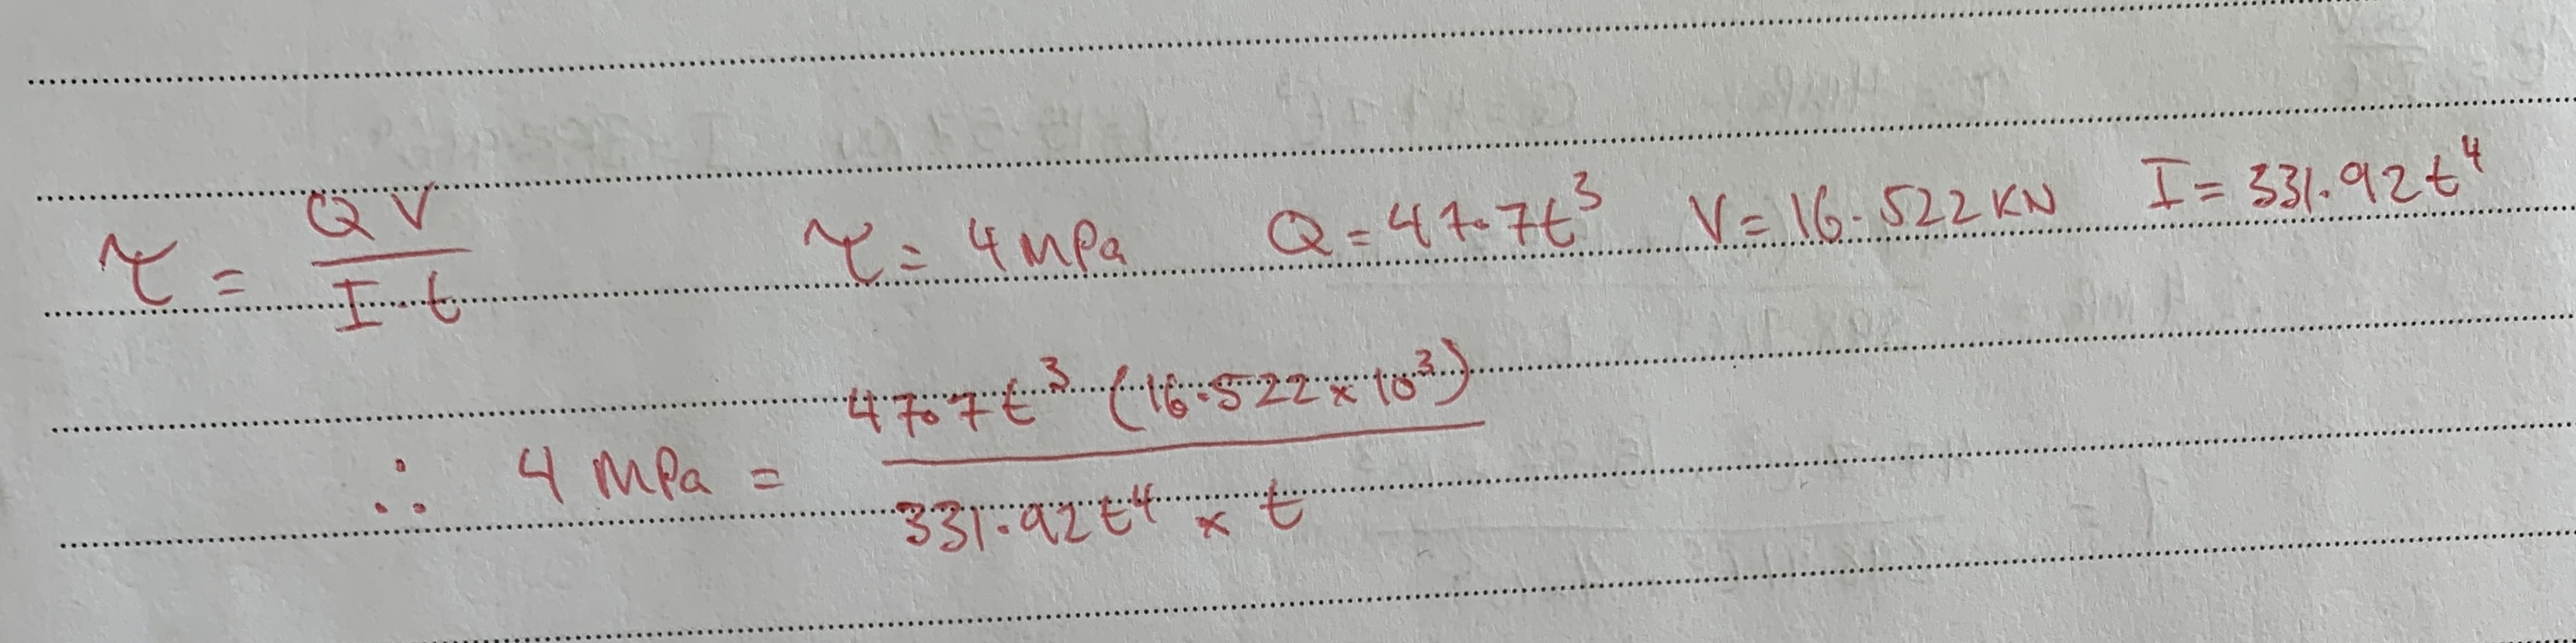 τ = QV / I·t    τ = 4 MPa    Q = 47.7t³    V = 16.522 KN    I = 331.92t⁴
∴ 4 MPa = 47.7t³ (16.522 × 10³) / 331.92t⁴ × t